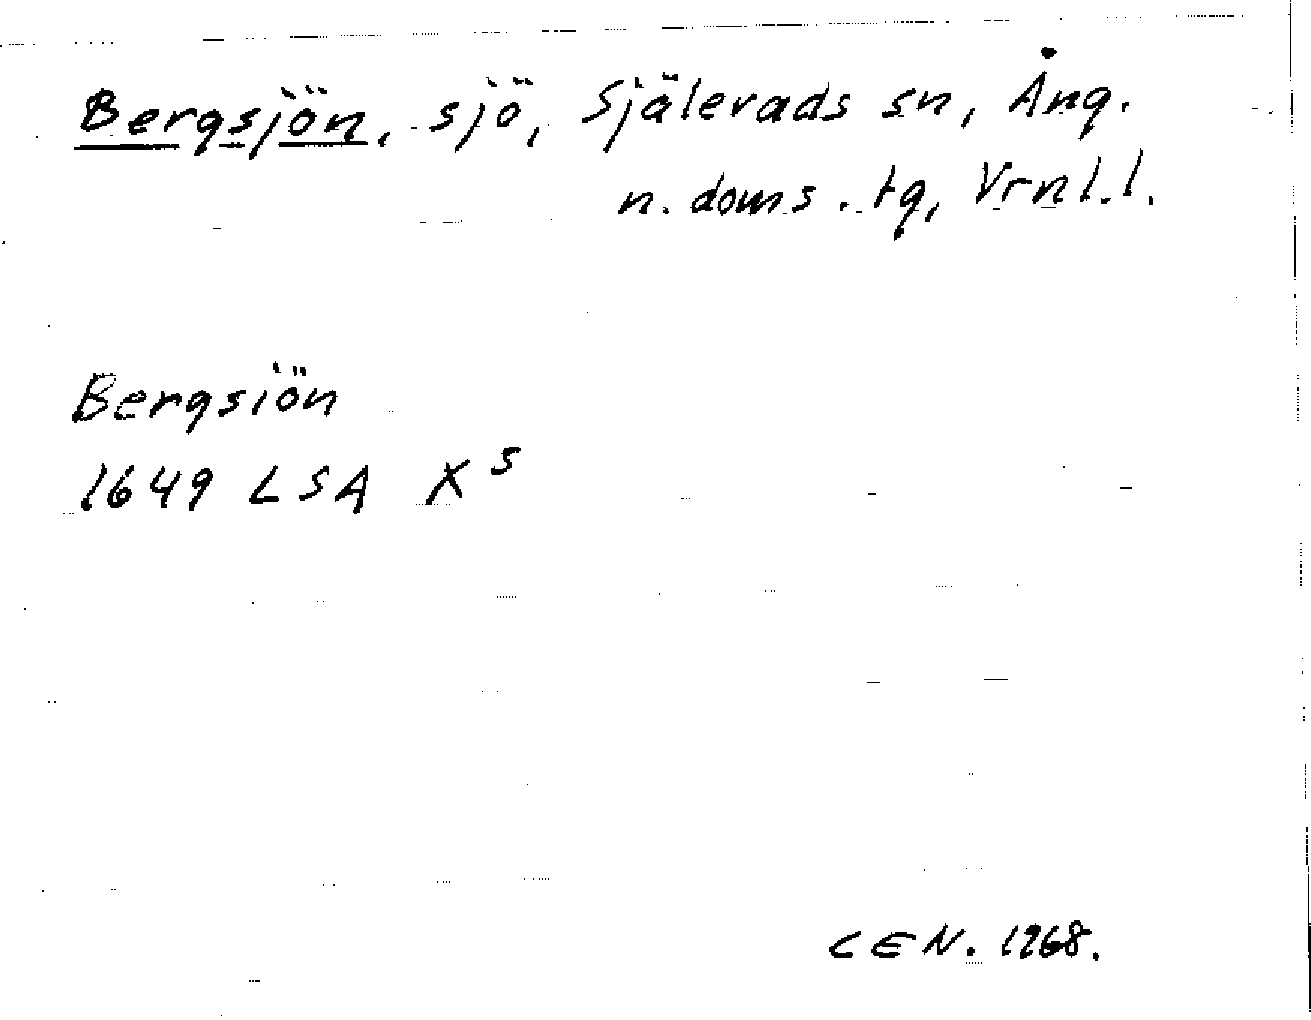 Bergsjön, sjö, Själevads sn, Ång.
n. doms. tg, Vrnl.l.
Bergsiön
1649 LSA X s
CEN. 1968.